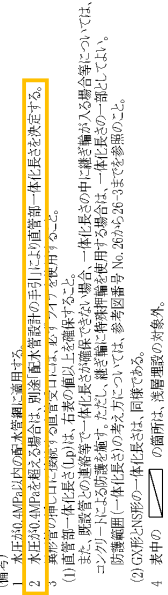 (備考)
1 水圧が0.4MPa以内の配水管網に適用する。
2 水圧が0.4MPaを超える場合は、別途「配水管設計の手引」により直管部一体化長さを決定する。
3 異形管の挿し口に接続する直管受口には、必ずライナを使用すること。
(1) 直管部一体化長さ(Lp)は、右表の値以上を確保すること。
また、既設管との連絡等で一体化長さが確保できない場合、一体化長さの中に継ぎ輪が入る場合等については、
コンクリートによる防護を施す。ただし、継ぎ輪に特殊押輪を使用する場合は、一体化長さの一部としてよい。
防護範囲(一体化長さ)の考え方については、参考図番号 No.26から26-3までを参照のこと。
(2) GX形とNS形の一体化長さは、同様である。
4 表中の の箇所は、浅層埋設の対象外。